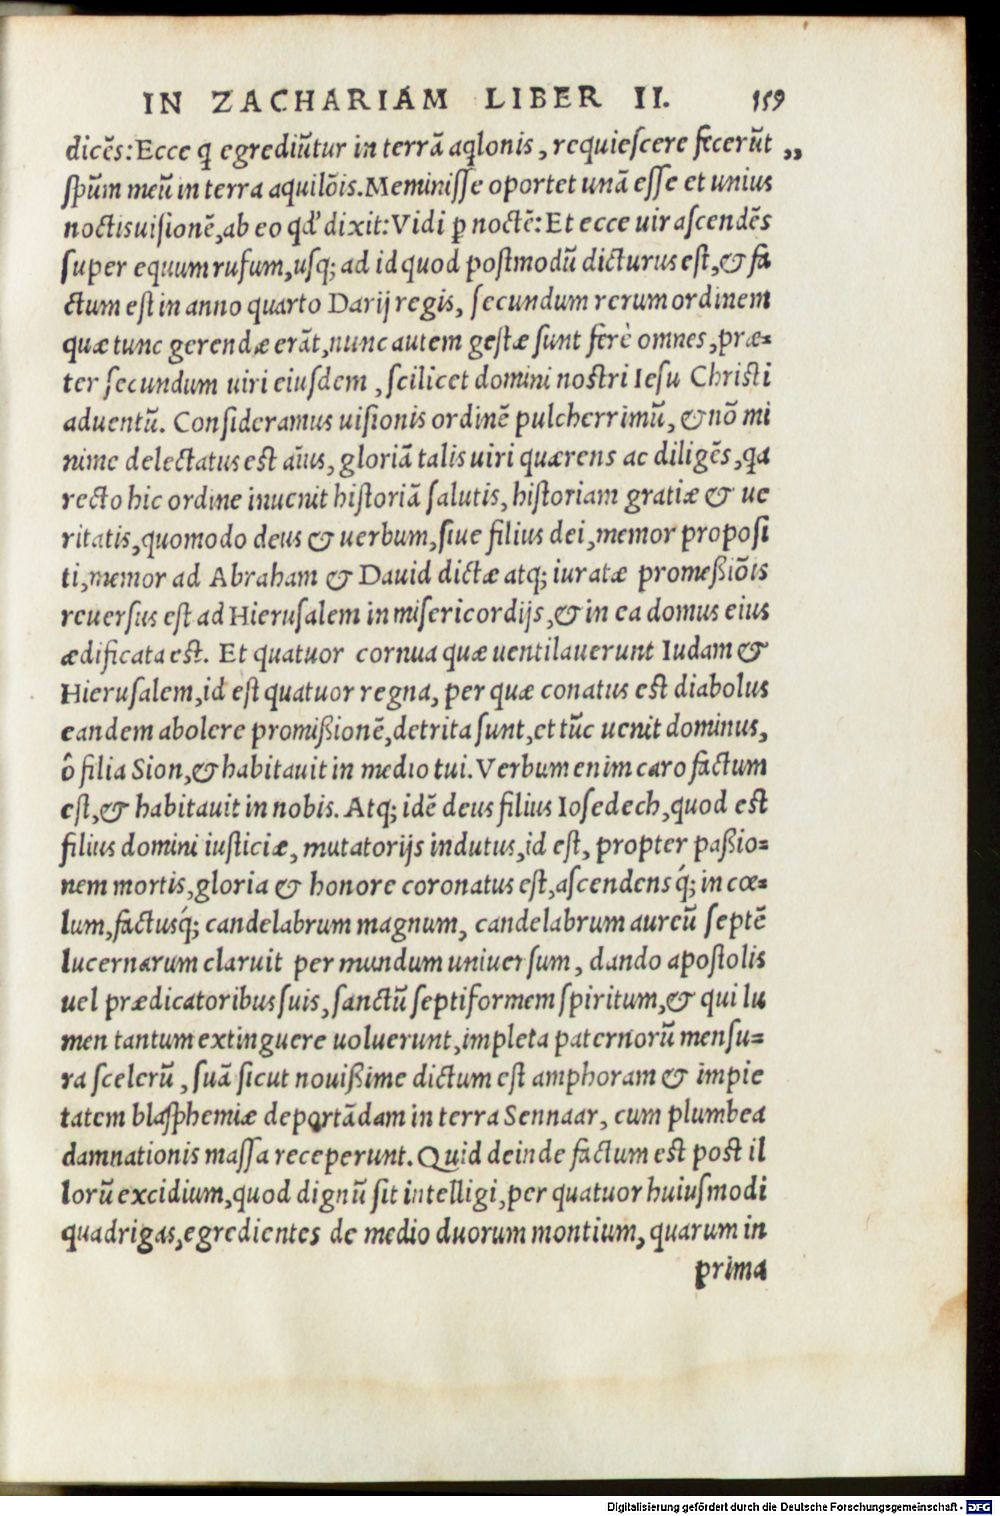 IN ZACHARIAM LIBER II. 159
dicẽs: Ecce q egrediũtur in terrã aqlonis, requiescere fecerũt „
spũm meũ in terra aquilõis. Meminisse oportet unã esse et unius
noctis uisionẽ, ab eo qd' dixit: Vidi ꝑ noctẽ: Et ecce uir ascendẽs
super equum rufum, usq; ad id quod postmodũ dicturus est, & fa
ctum est in anno quarto Darij regis, secundum rerum ordinem
quæ tunc gerendæ erãt, nunc autem gestæ sunt ferè omnes, præ-
ter secundum uiri eiusdem, scilicet domini nostri Iesu Christi
aduentũ. Consideramus uisionis ordinẽ pulcherrimũ, & nõ mi
nime delectatus est aĩus, gloriã talis uiri quærens ac diligẽs, qa
recto hic ordine inuenit historiã salutis, historiam gratiæ & ue
ritatis, quomodo deus & uerbum, siue filius dei, memor proposi
ti, memor ad Abraham & Dauid dictæ atq; iuratæ promeßiõis
reuersus est ad Hierusalem in misericordijs, & in ea domus eius
ædificata est. Et quatuor cornua quæ uentilauerunt Iudam &
Hierusalem, id est quatuor regna, per quæ conatus est diabolus
eandem abolere promißionẽ, detrita sunt, et tũc uenit dominus,
ô filia Sion, & habitauit in medio tui. Verbum enim caro factum
est, & habitauit in nobis. Atq; idẽ deus filius Iosedech, quod est
filius domini iusticiæ, mutatorijs indutus, id est, propter paßio-
nem mortis, gloria & honore coronatus est, ascendens q́; in cœ-
lum, factusq́; candelabrum magnum, candelabrum aureũ septẽ
lucernarum claruit per mundum uniuersum, dando apostolis
uel prædicatoribus suis, sanctũ septiformem spiritum, & qui lu
men tantum extinguere uoluerunt, impleta paternorũ mensu-
ra scelerũ, suã sicut nouißime dictum est amphoram & impie
tatem blasphemiæ deportãdam in terra Sennaar, cum plumbea
damnationis massa receperunt. Quid deinde factum est post il
lorũ excidium, quod dignũ sit intelligi, per quatuor huiusmodi
quadrigas, egredientes de medio duorum montium, quarum in
prima
Digitalisierung gefördert durch die Deutsche Forschungsgemeinschaft - DFG